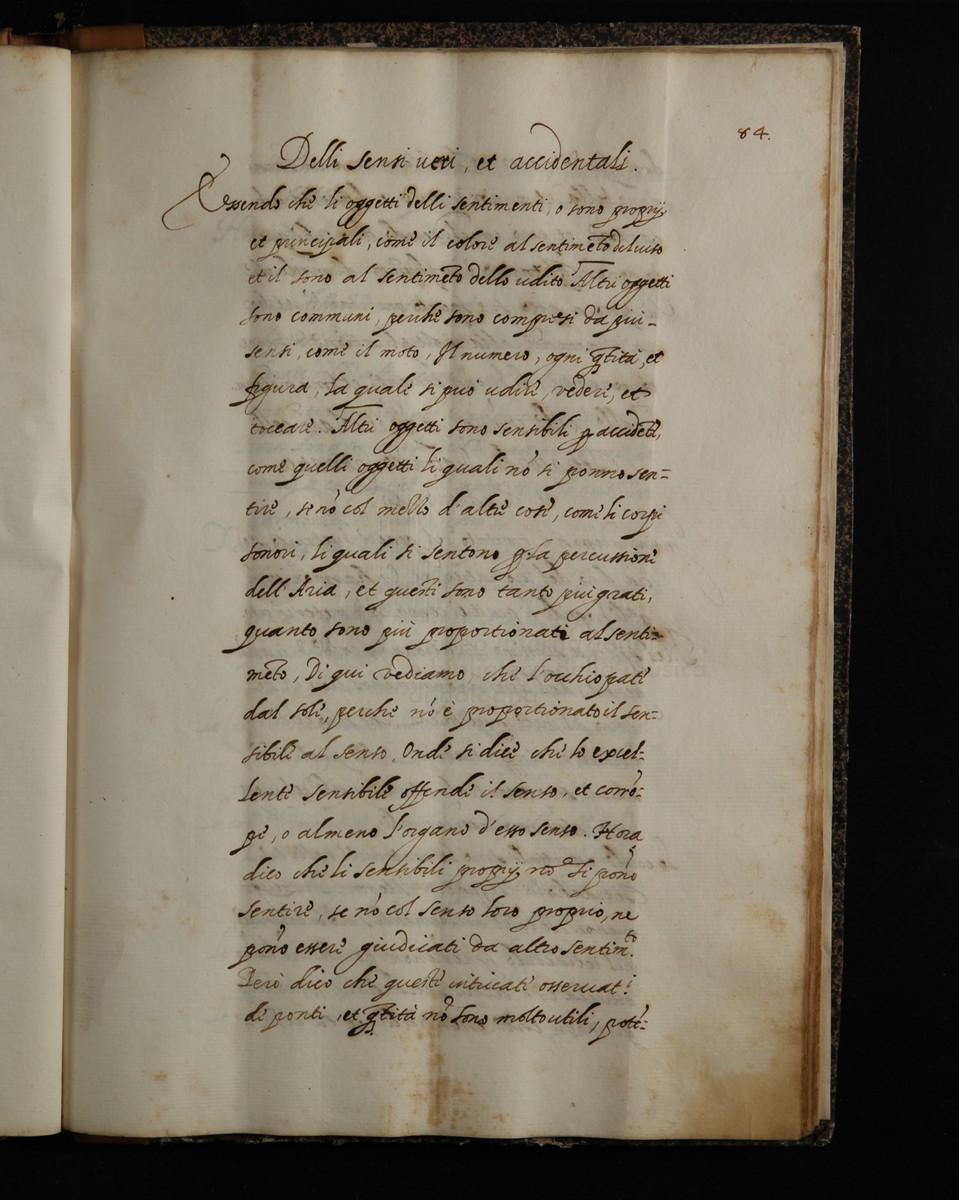 84.
Delli sensi ueri, et accidentali.
Essendo che li oggetti delli sentimenti, o sono proprij
et principali, come il colore al sentimẽto del uiso
et il sono al sentimẽto dello udito. Altri oggetti
sono communi, perche sono compresi da piu
sensi, come il moto, Il numero, ogni qtità, et
figura, la quale si può udire, vedere, et
toccare. Altri oggetti sono sensibili p accidẽte,
come quelli oggetti li quali nõ si ponno sen=
tire, se nõ col mezzo d'altre cose, come li corpi
sonori, li quali si sentono p la percussione
dell'Aria, et questi sono tanto piu grati,
quanto sono piu proportionati al senti=
mẽto, Di qui vediamo che l'occhio pate
dal sole, perche nõ è proportionato il sen=
sibile al senso. Onde si dice che lo excel=
lente sensibile offende il senso, et corrõ=
pe, o almeno l'organo d'esso senso. Hora
dico che li sensibili proprij nõ si põno
sentire, se nõ col senso loro proprio, ne
põno essere giudicati da altro sentim.to
Però dico che queste intricate osseruat.i
de ponti, et qtità nõ sono molto utili, potẽ=